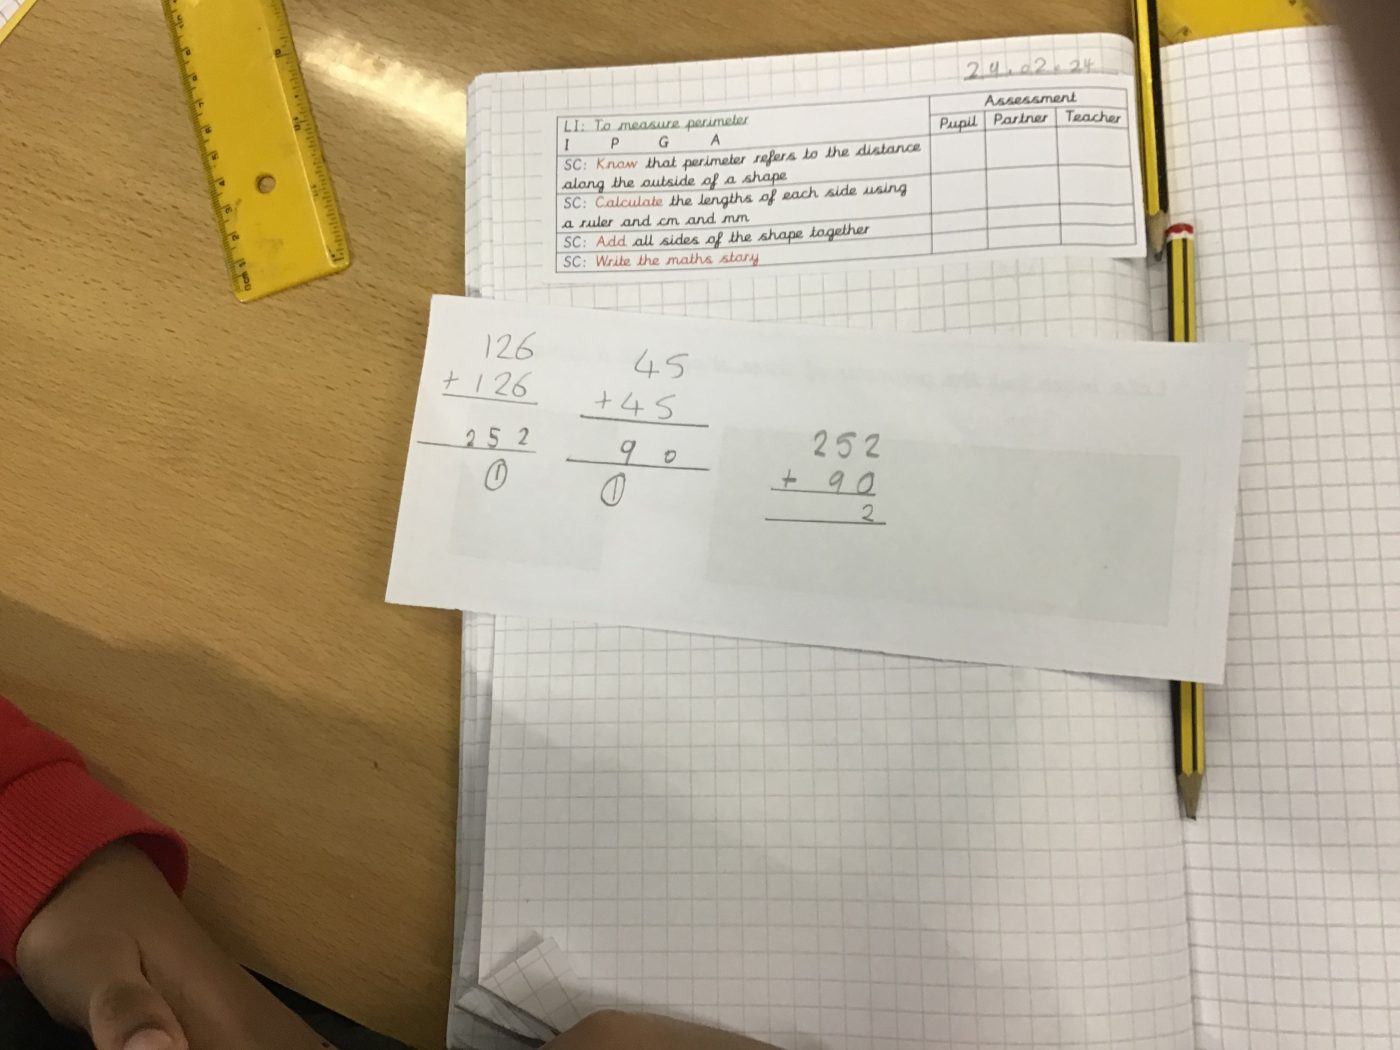 24.02.24
Assessment
LI: To measure perimeter
Pupil Partner Teacher
I P G A
SC: Know that perimeter refers to the distance
along the outside of a shape
SC: Calculate the lengths of each side using
a ruler and cm and mm
SC: Add all sides of the shape together
SC: Write the maths story
126
+ 126
252
1
45
+45
90
1
252
+ 90
2